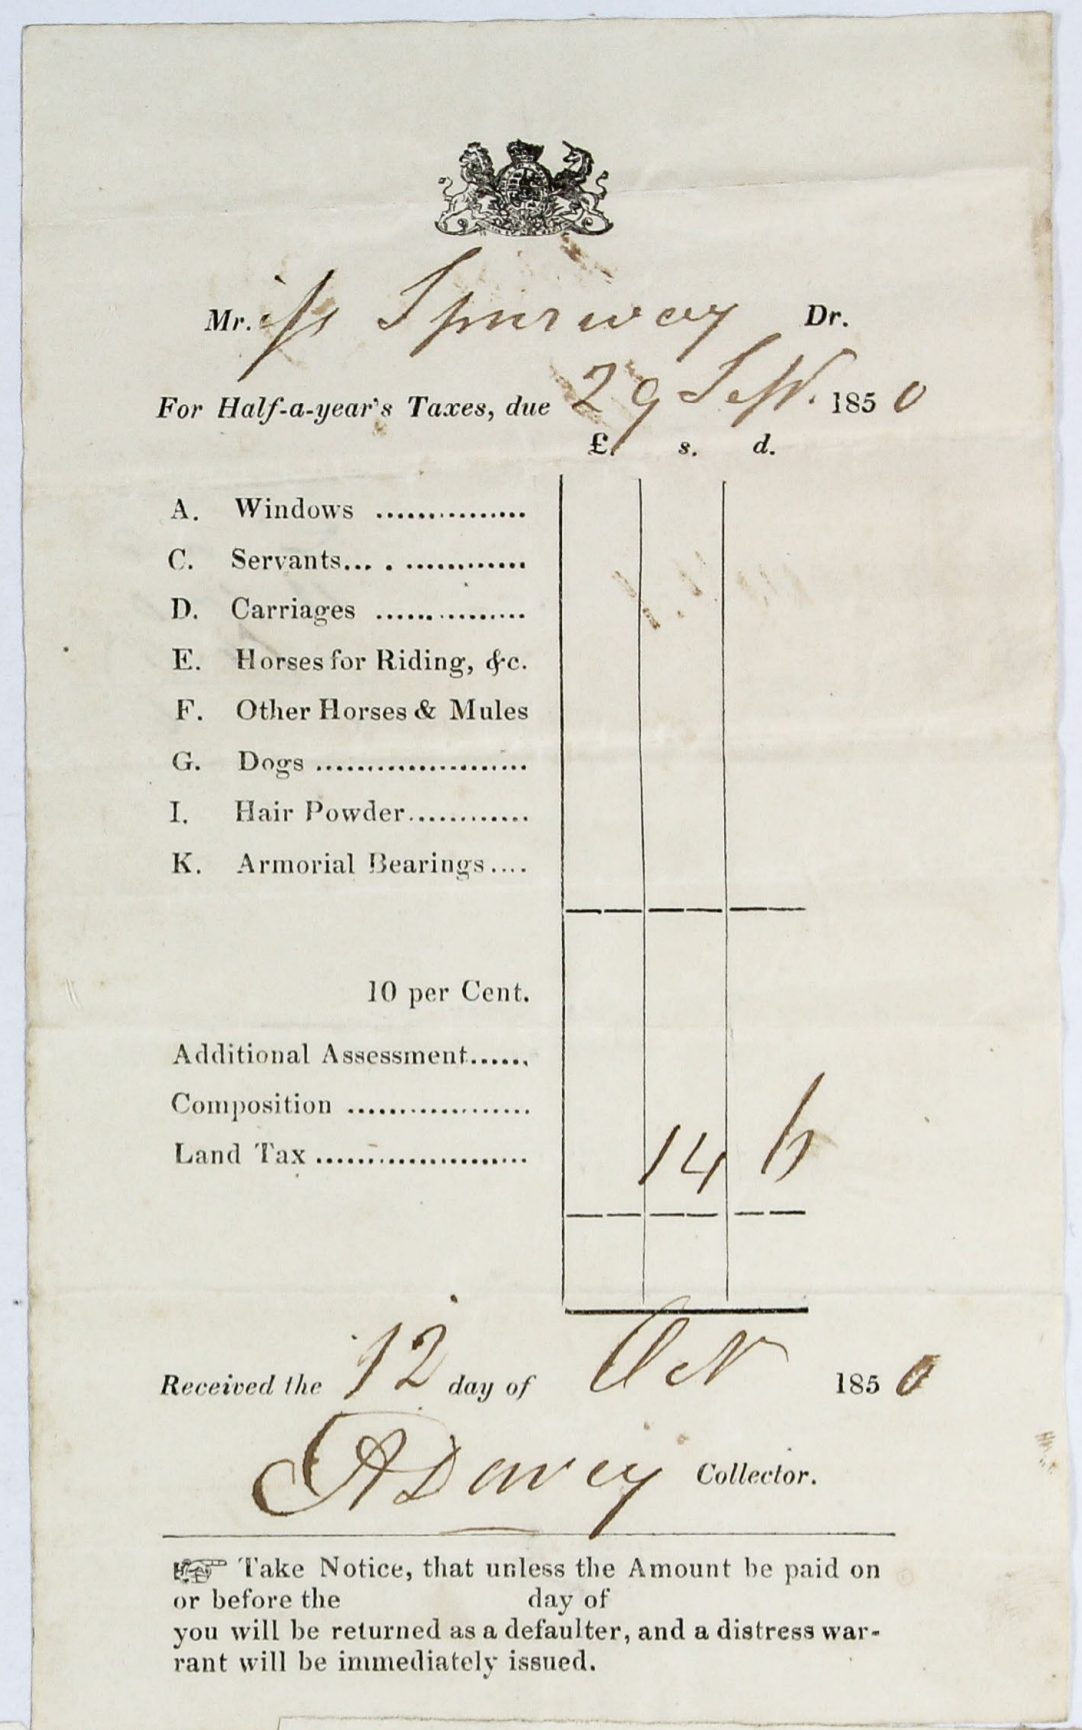 Mr.iss Spurway Dr.
For Half-a-year's Taxes, due 29 Sept. 1850
£. s. d.
A. Windows ...............
C. Servants.... . ............
D. Carriages ...............
E. Horses for Riding, &c.
F. Other Horses & Mules
G. Dogs .....................
I. Hair Powder............
K. Armorial Bearings....
10 per Cent.
Additional Assessment......
Composition ..................
Land Tax ..................... 14 6
Received the 12 day of Oct 1850
A Davey Collector.
☞ Take Notice, that unless the Amount be paid on
or before the day of
you will be returned as a defaulter, and a distress war-
rant will be immediately issued.